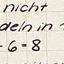 nicht
deln in
-6=8